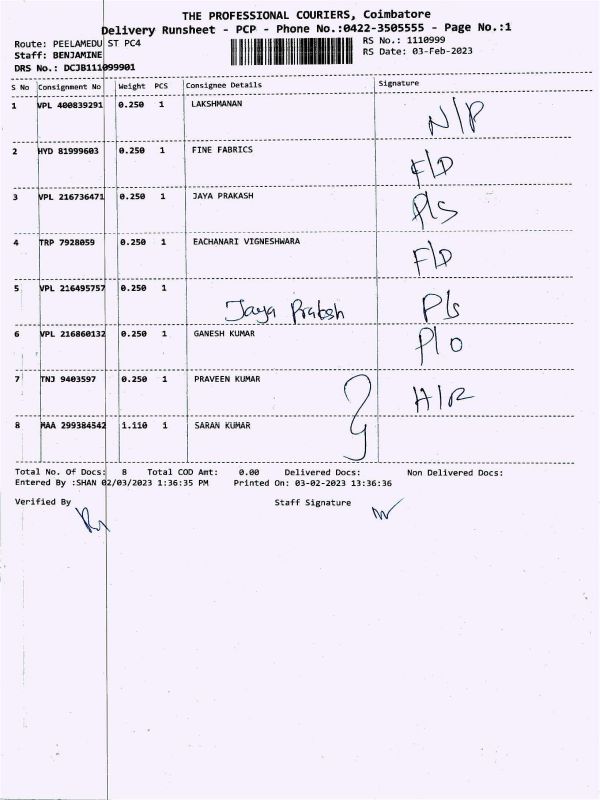 THE PROFESSIONAL COURIERS, Coimbatore
Delivery Runsheet - PCP - Phone No.:0422-3505555 - Page No.:1
Route: PEELAMEDU ST PC4
RS No.: 1110999
Staff: BENJAMINE
RS Date: 03-Feb-2023
DRS No.: DCJB111099901
S No Consignment No Weight PCS Consignee Details Signature
1 VPL 400839291 0.250 1 LAKSHMANAN N/P
2 HYD 81999603 0.250 1 FINE FABRICS F/D
3 VPL 216736471 0.250 1 JAYA PRAKASH P/S
4 TRP 7928059 0.250 1 EACHANARI VIGNESHWARA F/D
5 VPL 216495757 0.250 1 Jaya Prakash P/S
6 VPL 216860132 0.250 1 GANESH KUMAR P/O
7 TNJ 9403597 0.250 1 PRAVEEN KUMAR H/R
8 MAA 299384542 1.110 1 SARAN KUMAR
Total No. Of Docs: 8 Total COD Amt: 0.00 Delivered Docs: Non Delivered Docs:
Entered By :SHAN 02/03/2023 1:36:35 PM Printed On: 03-02-2023 13:36:36
Verified By Staff Signature